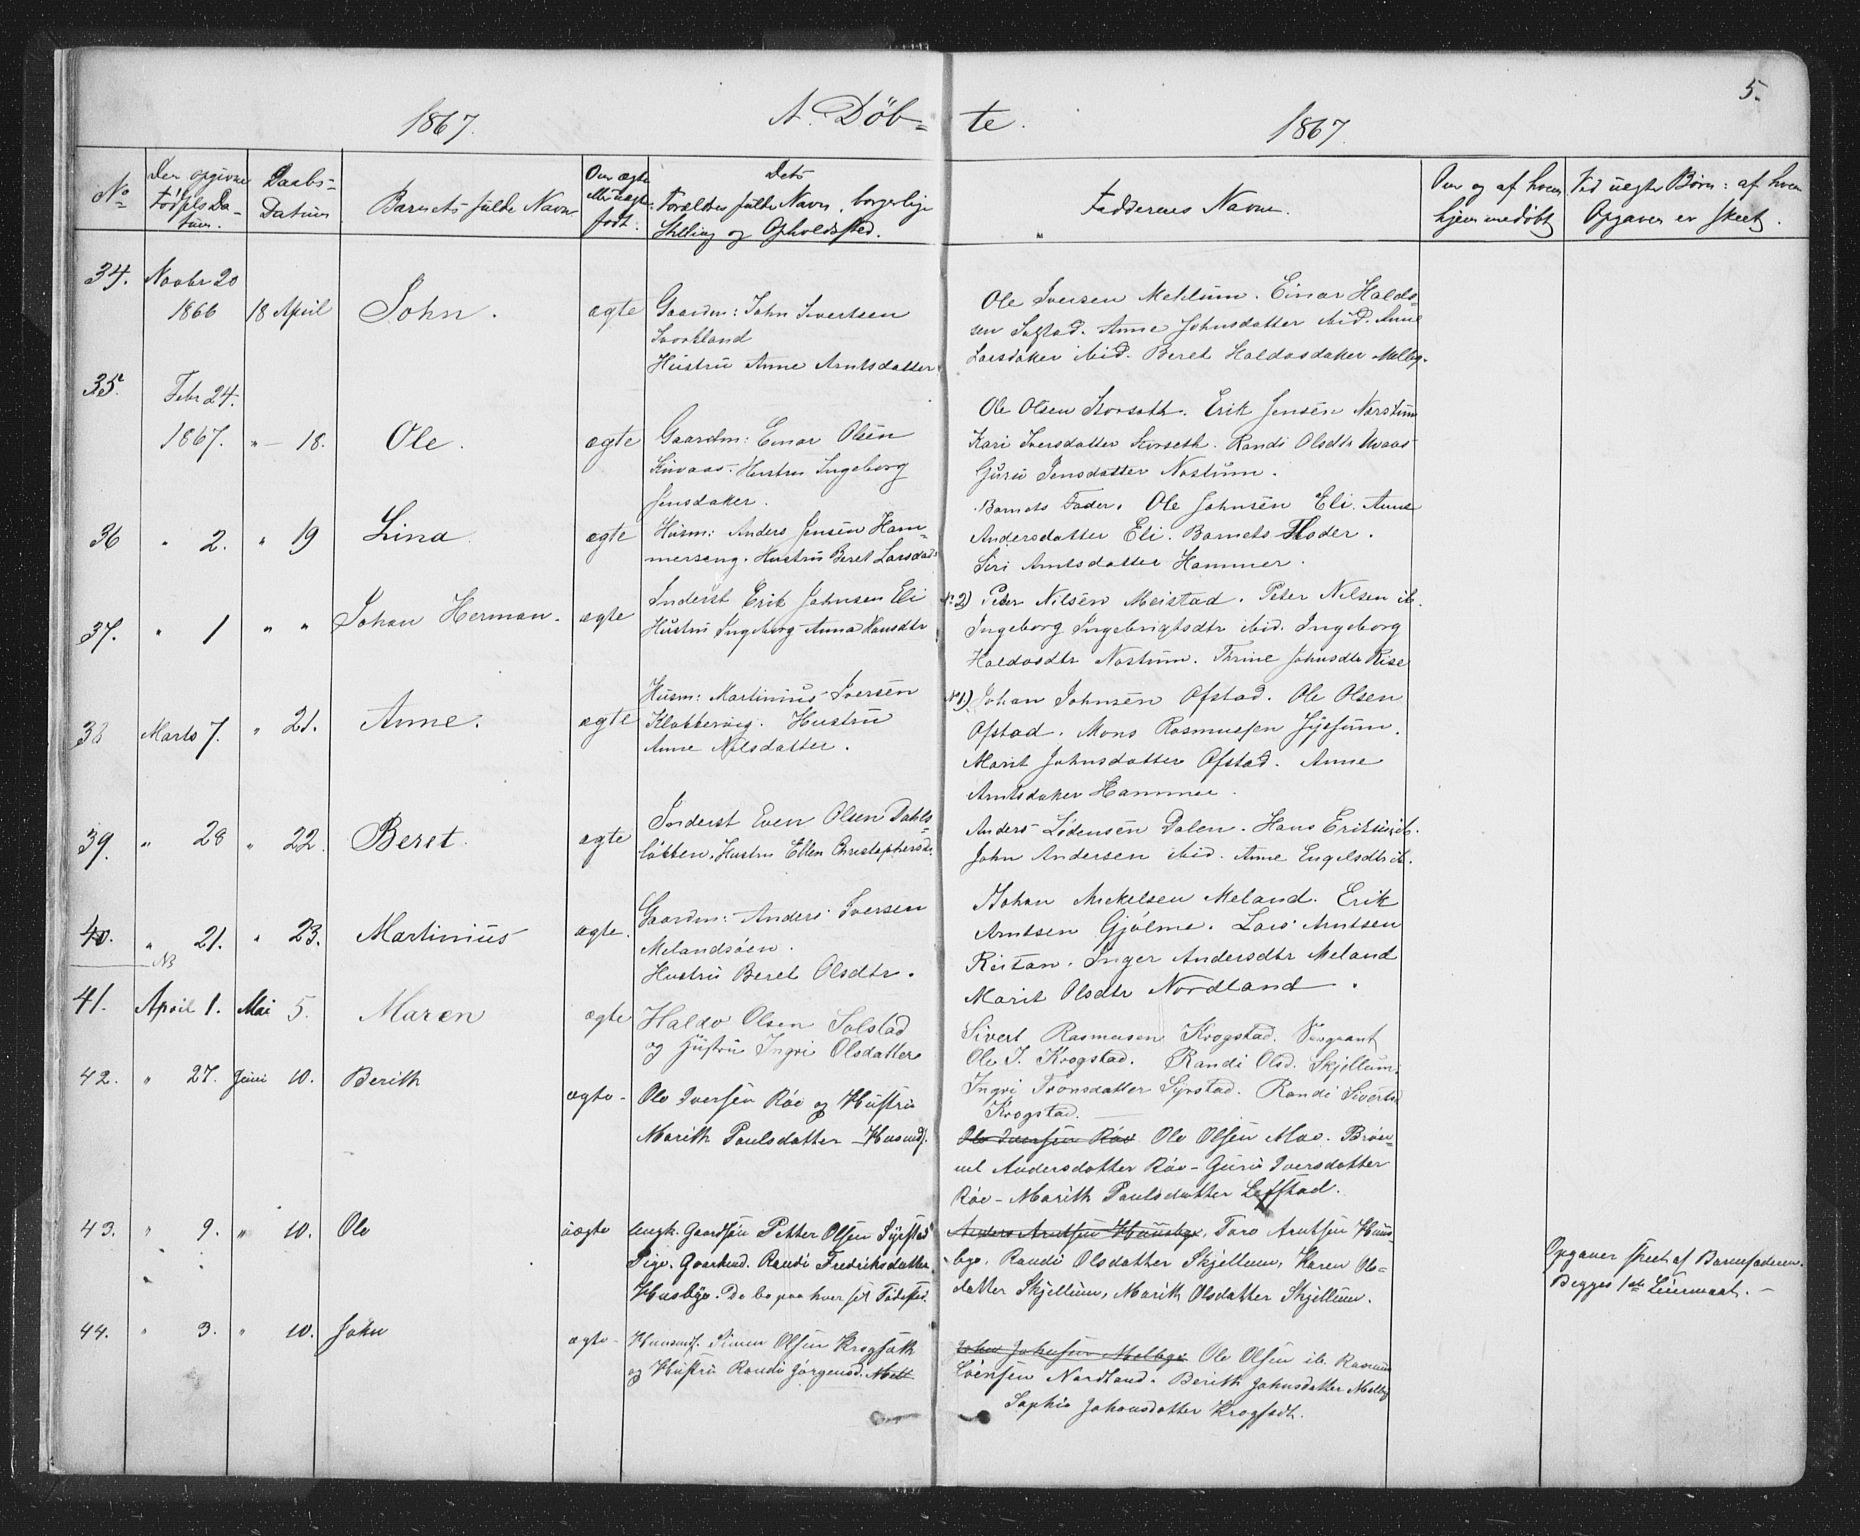 5.
1867.
A. Døb=
te.
1867
No
Den opgivne
Fødsels Da-
tum.
Daabs-
Datum
Barnets fulde Navn
Om ægte
eller uægte
født.
Dets
Forældres fulde Navn, borgerlige
Stilling og Opholdssted.
Faddernes Navne.
Om og af hvem
hjemmedøbt
Ved uegte Børn: af hvem
Opgaven er skeet.
34.
Novbr 20
1866
18 April
John.
ægte
Gaardm: John Sivertsen
Hustru Anne Arntsdatter
Ole Iversen Mehlum. Einar Halds-
sen Solstad. Anne Johnsdatter ibid. Anne
Larsdatter ibid. Beret Haldosdatter Melbye.
35.
Febr 24.
1867.
" — 18.
Ole.
ægte
Gaardm: Einar Olsen
Hustru Ingeborg
Jensdatter.
Ole Olsen Storseth. Erik Jensen Nerstum
Kari Iversdatter Storseth. Randi Olsdtr
Guru Jensdatter Nostum.
36
" 2.
" 19
Lina
ægte
Husm: Anders Jensen Ham-
mereng. Hustru Beret Larsdatr
Barnets Fader. Ole Johnsen Eli. Anne
Andersdatter Eli. Barnets Moder.
Siri Arntsdatter Hammer.
37.
" 1
" "
Johan Herman.
ægte
Inderst Erik Johnsen Eli
Hustru Ingeborg Anna Hansdtr
No 2) Peder Nilsen Meistad. Peter Nilsen ib.
Ingeborg Ingebrigtsdtr ibid. Ingeborg
Haldosdtr Nostum. Thrine Johnsdtr Rise
38
Marts 7.
" 21.
Anne.
ægte
Husm: Martinius Iversen
Klokkereng. Hustru
Anne Nilsdatter.
No 1) Johan Johnsen Ofstad. Ole Olsen
Ofstad. Mons Rasmussen
Marit Johnsdatter Ofstad. Anne
Arntsdatter Hammer.
39.
" 28
" 22.
Beret.
ægte
Inderst Even Olsen Dahls-
løkken. Hustru Ellen Christophersdr.
Anders Lødensen Dalen. Hans Eriksen ib.
John Andersen ibid. Anne Engelsdtr ib.
40.
" 21.
NB
" 23.
Martinius
ægte.
Gaardm: Anders Iversen
Melandsøen.
Hustru Beret Olsdtr.
Johan Mickelsen Meland. Erik
Arntsen Gjølme. Lars Arntsen
Reitan. Inger Andersdtr Meland
Marit Olsdtr Nordland.
41.
April 1.
Mai 5.
Maren
ægte
Haldo Olsen Solstad
og Hustru Ingri Olsdatter
Sivert Rasmusen Krogstad. Sergeant
Ole I. Krogstad. Randi Olsd. Skjellum.
Ingri Tronsdatter Syrstad. Randi Sivertsd
Krogstad.
42.
" 27.
Juni 10.
Berith
ægte -
Ole Iversen Røe og Hustru
Marith Paulsdatter - Husmf.
Ole Iversen Røe Ole Olsen Moe. Brøn-
nel Andersdatter Røe - Guru Iversdatter
Røe - Marith Paulsdatter Lefstad.
43.
" 9.
" 10.
Ole
uægte
Ungk. Gaardsøn Petter Olsen Syrstad
Pige. Gaardmd. Randi Fredriksdatter
Husbye. De bo paa hver sit Fødested.
Anders Arntsen Huusbye, Tore Arntsen Huus-
bye. Randi Olsdatter Skjellum, Karen Ols-
datter Skjellum, Marith Olsdatter Skjellum.
Opgaven skeet af Barnefaderen.
Begges 1ste Leiermaal. -
44.
" 3.
" 10.
John
ægte -
Huusmf. Simen Olsen Krogsæth
og Hustru Randi Jørgensd.
John Johnsen Melbye Ole Olsen ib. Rasmus
Nordland. Berith Johnsdatter Melby
Sophie Johansdatter Krogsæth.